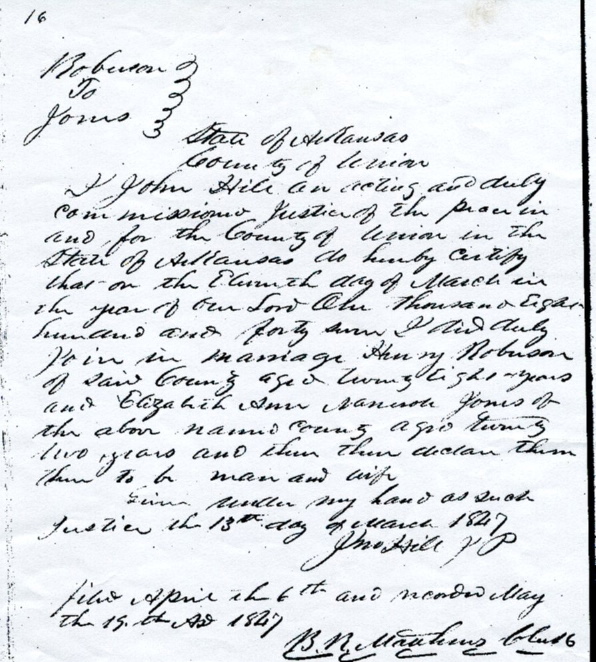 16
Robinson
To
Jones
State of Arkansas
County of Union
I John Hill an acting and duly
commissiond Justice of the peace in
and for the County of Union in the
State of Arkansas do herby certify
that on the Eleventh day of March in
the year of our Lord One thousand Eight
hundred and forty seven I did duly
Join in marriage Henry Robinson
of said County aged twenty Eight years
and Elizabeth Ann Jones of
the above named county aged twenty
two years and then there declare them
them to be man and wife
Given under my hand as such
Justice the 13th day of March 1847
Jno Hill J P
filed April the 6th and recorded May
the 19.th AD 1847
B. R. Matthews Clerk